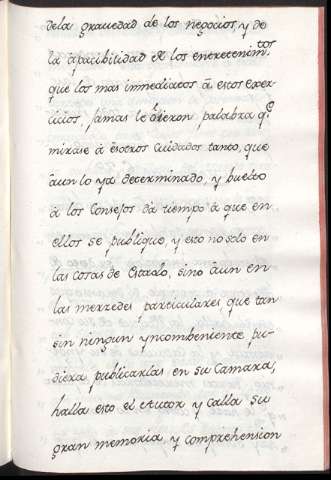 dela grauedad de los negocios, y de
la apacibilidad de los entretenim.tos
que los mas immediatos â estos exer-
cicios, jamas le oÿeron palabra q.e
mirase â esotros cuidados tanto, que
âun lo ya determinado, y buelto
â los Consejos da tiempo â que en
ellos se publique, y esto no solo en
las cosas de Estado, sino âun en
las merzedes particulares, que tan
sin ningun ynconbeniente pu-
diera publicarlas en su Camara,
halla esto el Autor y calla su
gran memoria, y comprehension